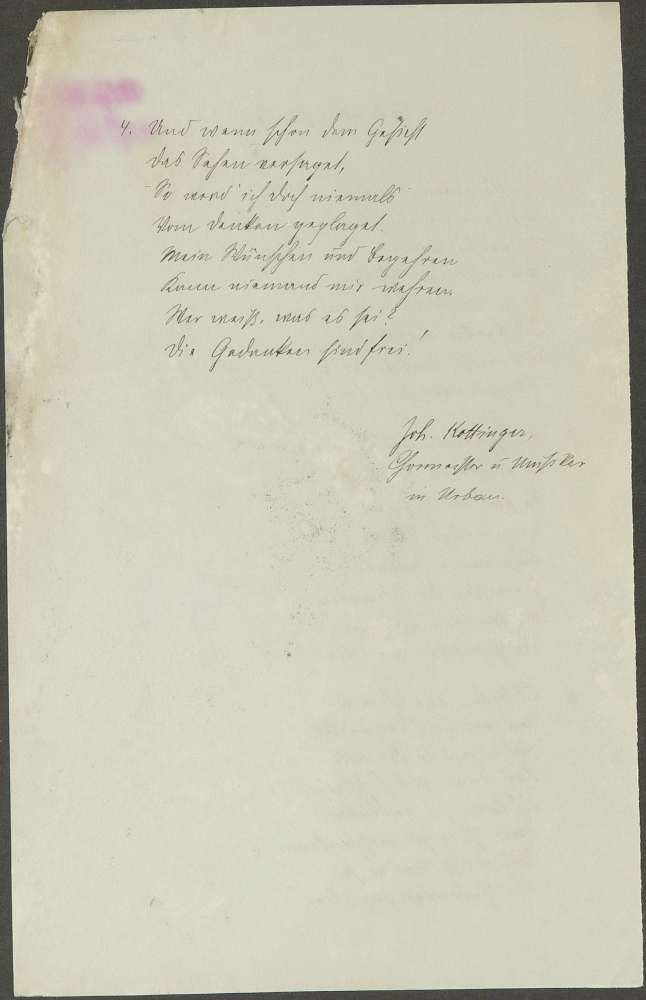 4. Und wenn schon dem Gesicht
das Sehen versaget,
So werd' ich doch niemals
Vom denken geplaget.
Mein Wünschen und begehren
Kann niemand mir wehren.
Wer weiß, was es sei?
Die Gedanken sind frei!
Joh. Kottinger,
u Musiker
in Urbau.